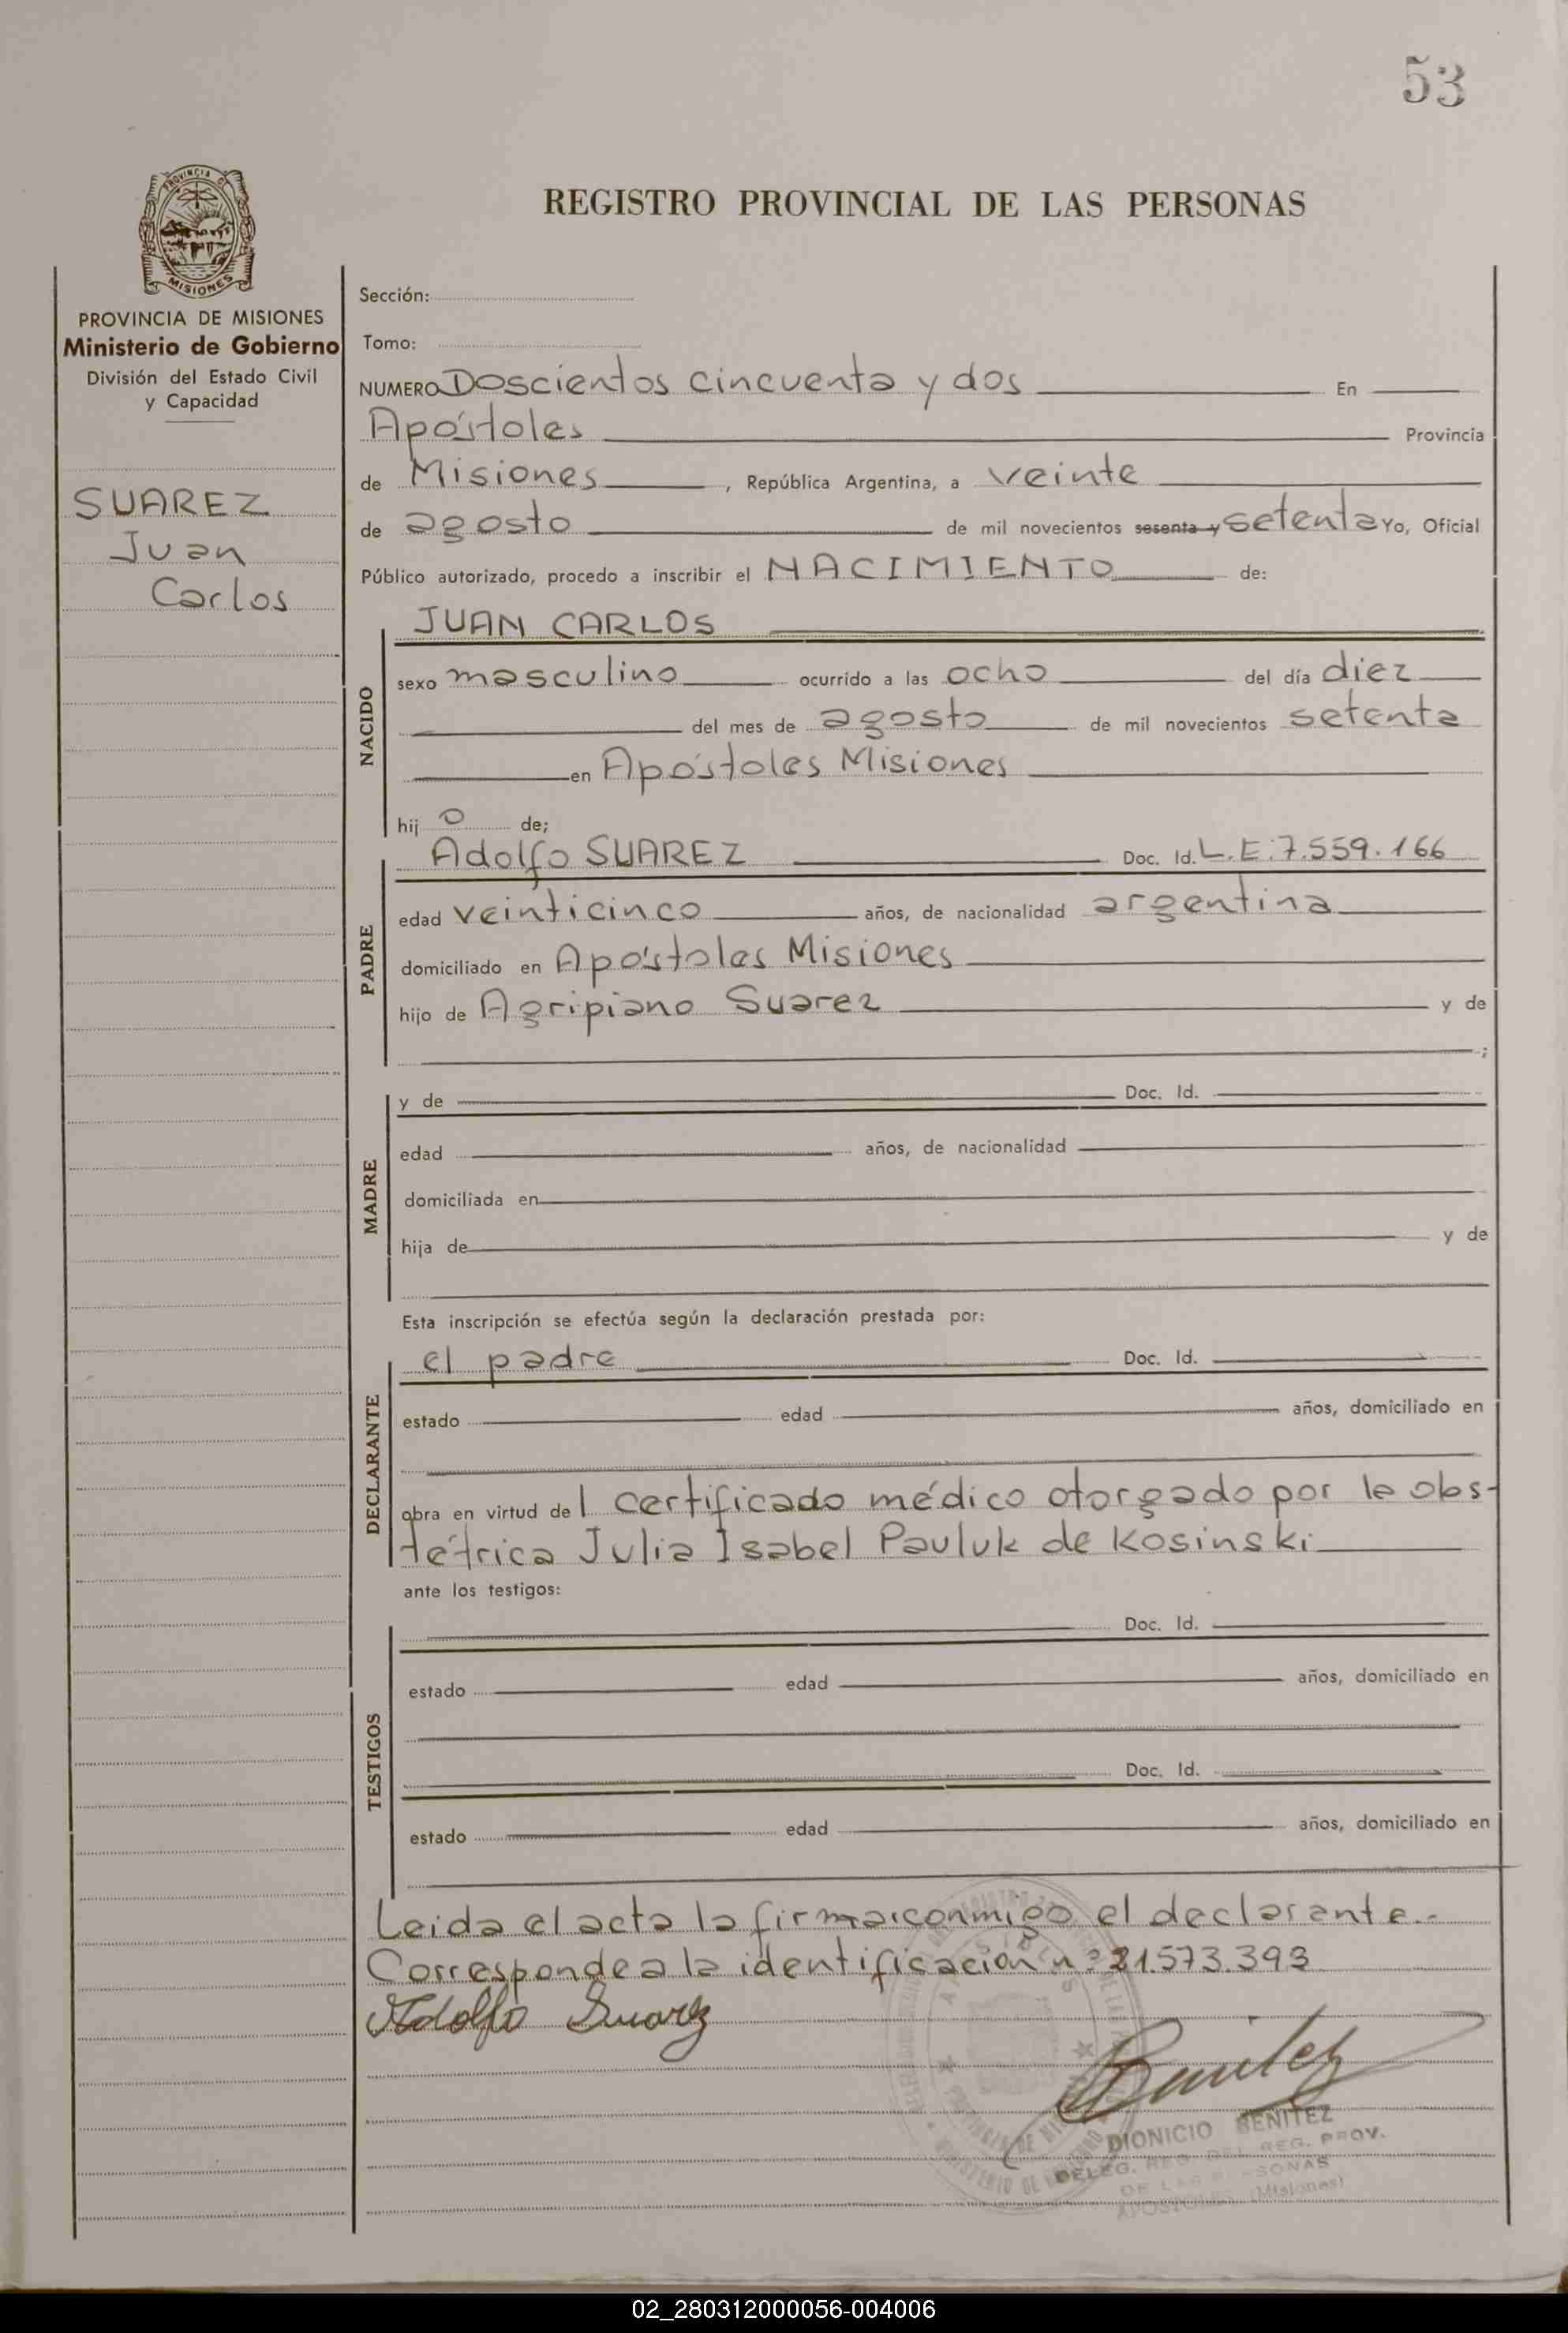 53
PROVINCIA DE
MISIONES
REGISTRO PROVINCIAL DE LAS PERSONAS
PROVINCIA DE MISIONES
Ministerio de Gobierno
División del Estado Civil
y Capacidad
SUAREZ
Juan
Carlos
Sección:
Tomo:
NUMERO Doscientos cincuenta y dos En
Apóstoles Provincia
de Misiones, República Argentina, a veinte
de agosto de mil novecientos sesenta y setenta Yo, Oficial
Público autorizado, procedo a inscribir el NACIMIENTO de:
NACIDO
JUAN CARLOS
sexo masculino ocurrido a las ocho del día diez
del mes de agosto de mil novecientos setenta
en Apóstoles Misiones
hijo de;
PADRE
Adolfo SUAREZ Doc. Id. L.E.7.559.166
edad veinticinco años, de nacionalidad argentina
domiciliado en Apóstoles Misiones
hijo de Agripiano Suarez y de
;
MADRE
y de Doc. Id.
edad años, de nacionalidad
domiciliada en
hija de y de
Esta inscripción se efectúa según la declaración prestada por:
DECLARANTE
el padre Doc. Id.
estado edad años, domiciliado en
obra en virtud del certificado médico otorgado por la obs-
tétrica Julia Isabel Pauluk de Kosinski
ante los testigos:
TESTIGOS
Doc. Id.
estado edad años, domiciliado en
Doc. Id.
estado edad años, domiciliado en
Leida el acta la firma conmigo el declarante.-
Corresponde a la identificación nº 21.573.393
Adolfo Suarez
Benitez
DIONICIO BENITEZ
DELEG. REG. DEL REG. PROV.
DE LAS PERSONAS
APOSTOLES (Misiones)
02_280312000056-004006